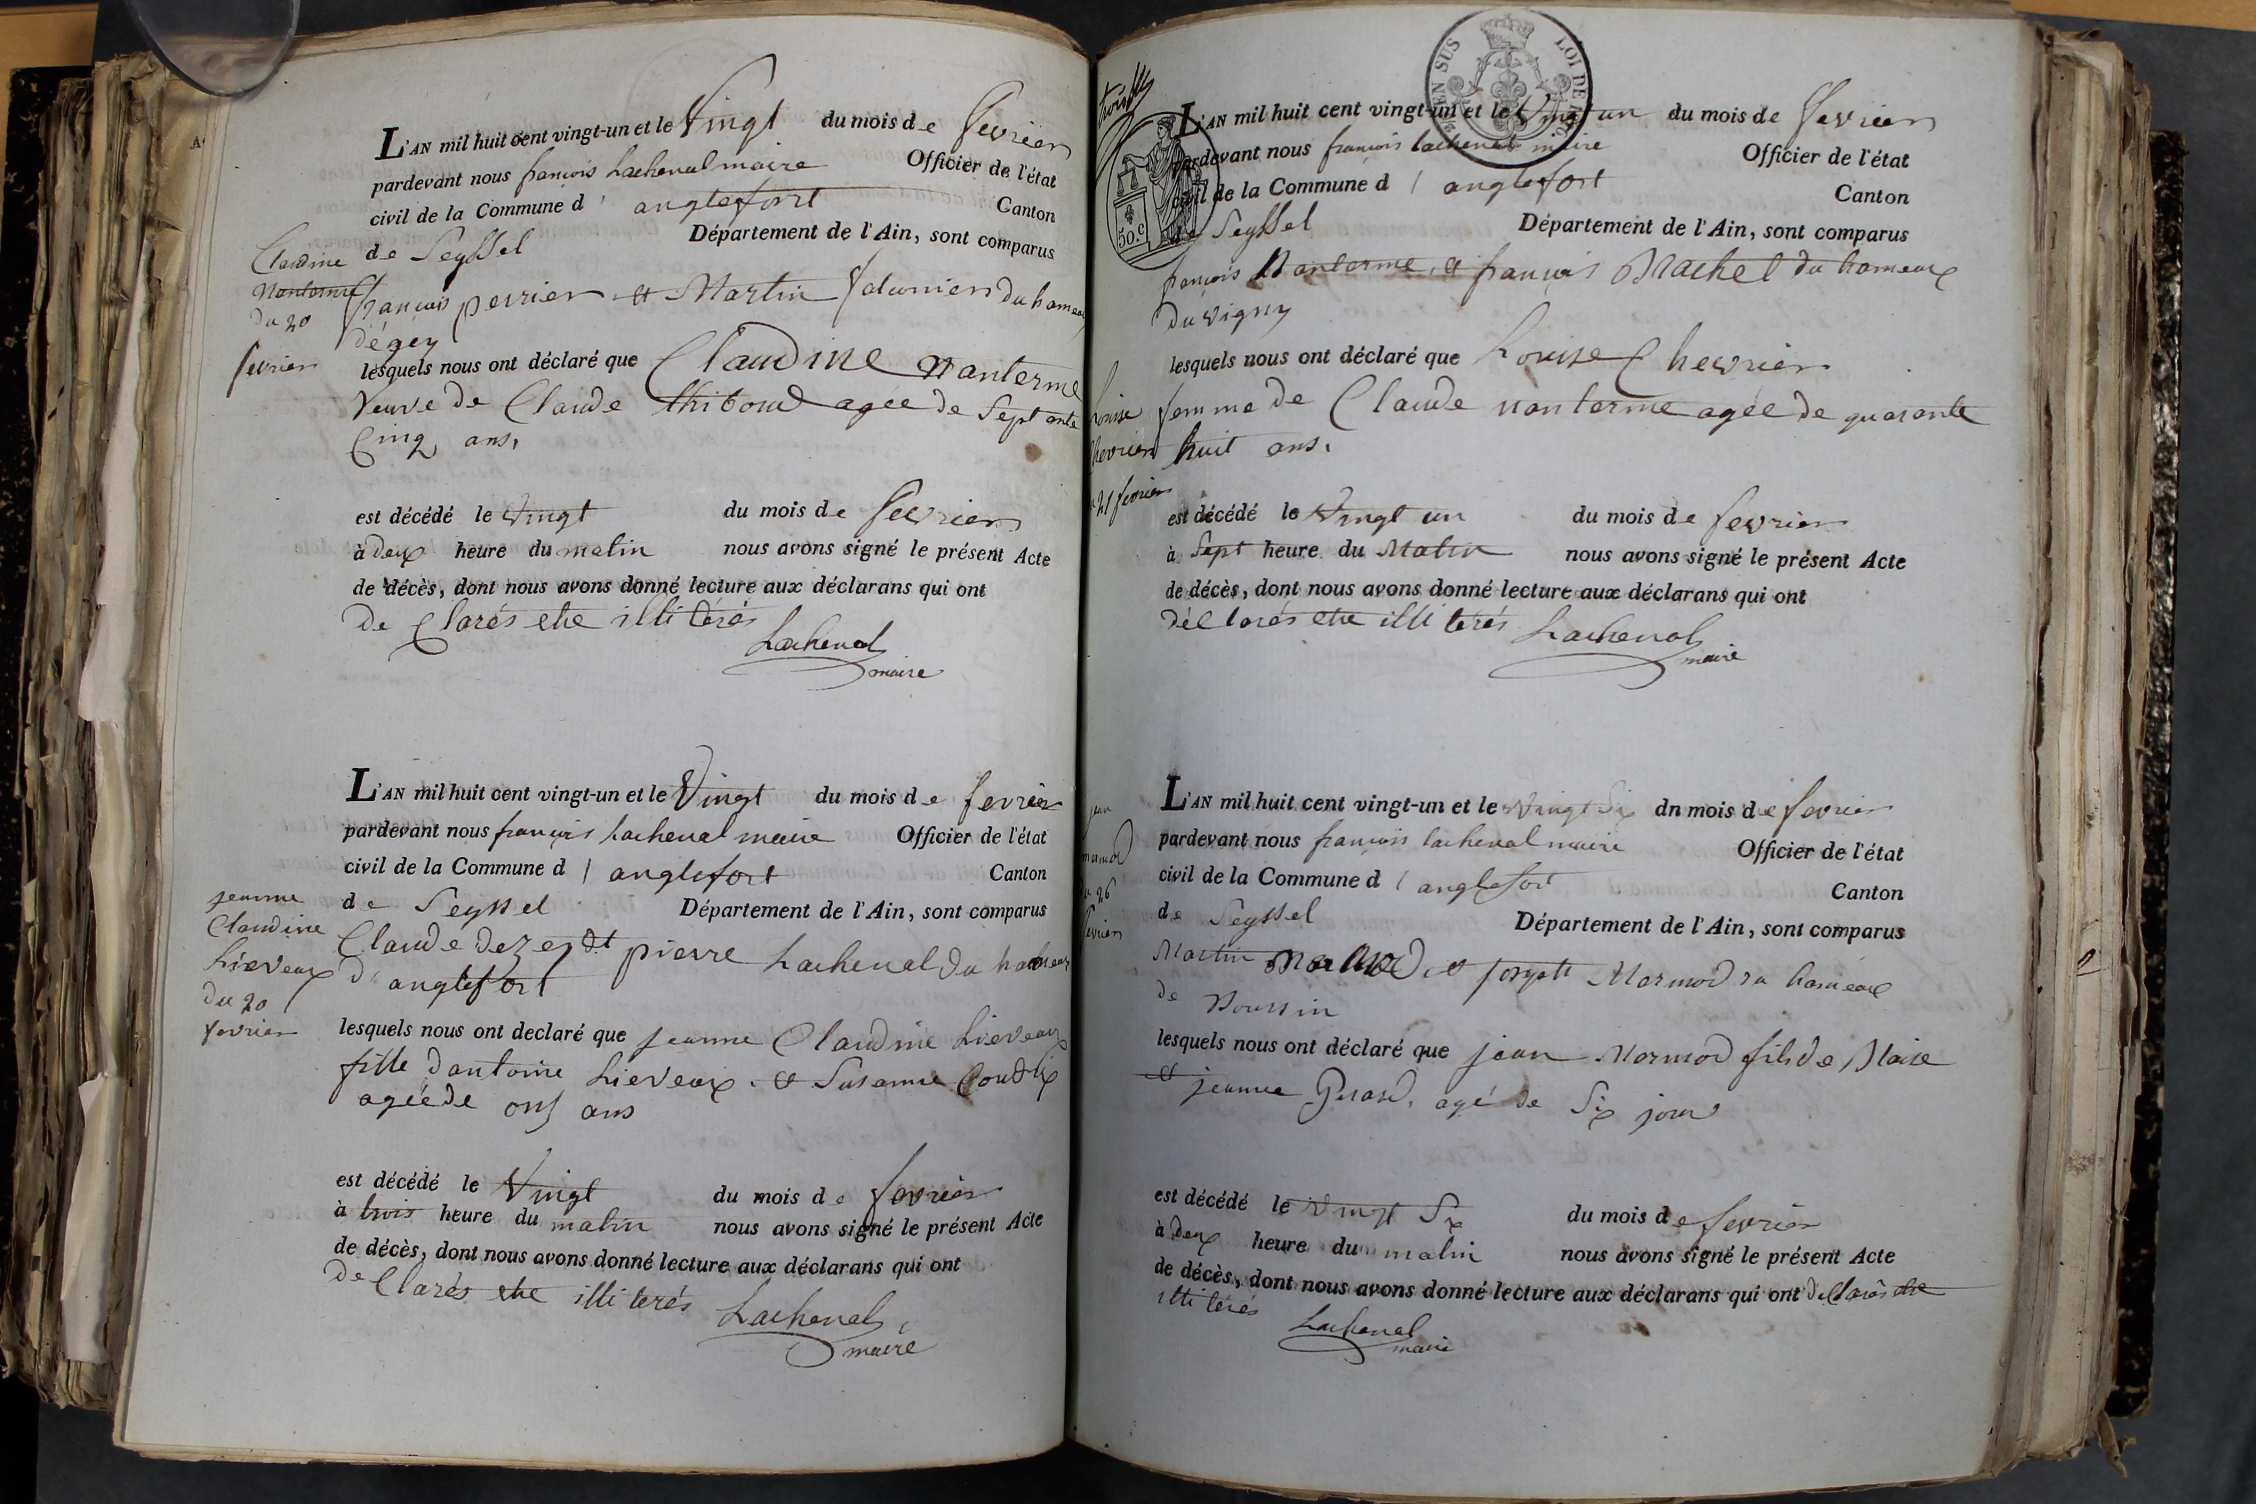 Claudine
Nanterme
du 20
fevrier
L'AN mil huit cent vingt-un et le Vingt du mois de fevrier
pardevant nous françois Lachenal maire Officier de l'état
civil de la Commune d' anglefort Canton
de Seyssel Département de l'Ain, sont comparus
françois perrier et Martin du hameau
lesquels nous ont déclaré que Claudine Nanterme
Veuve de Claude thiboud agee de Septante
Cinq ans,
est décédé le Vingt du mois de fevrier
à deux heure du matin nous avons signé le présent Acte
de décès, dont nous avons donné lecture aux déclarans qui ont
de Clarés etre illi térés
Lachenal
maire
jeanne
Claudine
Lieveaux
du 20
fevrier
L'AN mil huit cent vingt-un et le Vingt du mois de fevrier
pardevant nous françois Lachenal maire Officier de l'état
civil de la Commune d' anglefort Canton
de Seyssel Département de l'Ain, sont comparus
Claude et pierre Lachenal du hameau
d'anglefort
lesquels nous ont declaré que jeanne Claudine Lieveaux
fille d'antoine Lieveaux et Susanne
agéé de ans
est décédé le Vingt du mois de fevrier
à trois heure du matin nous avons signé le présent Acte
de décès, dont nous avons donné lecture aux déclarans qui ont
de Clarés etre illi terés
Lachenal
maire
EN SUS LOI DE
50.c
L'AN mil huit cent vingt-un et le Vingt un du mois de fevrier
pardevant nous françois Lachenal maire Officier de l'état
civil de la Commune d' anglefort Canton
de Seyssel Département de l'Ain, sont comparus
françois Nanterme et françois Brachet du hameaux
du vigny
Louise
Chevrier
21 fevrier
lesquels nous ont déclaré que Louise Chevrier
femme de Claude nanterme agée de quarante
huit ans.
est décédé le Vingt un du mois de fevrier
à Sept heure du Matin nous avons signé le présent Acte
de décès, dont nous avons donné lecture aux déclarans qui ont
déclarés etre illi terés
Lachenal
maire
jean
mermod
du 26
fevrier
L'AN mil huit cent vingt-un et le Vingt Six dn mois de fevrier
pardevant nous françois Lachenal maire Officier de l'état
civil de la Commune d' anglefort Canton
de Seyssel Département de l'Ain, sont comparus
Martin et Mermod du hameaux
de
lesquels nous ont déclaré que jean Mermod fils de Blaise
et jeanne agé de Six jour
est décédé le Vingt Six du mois de fevrier
à deux heure du matin nous avons signé le présent Acte
de décès, dont nous avons donné lecture aux déclarans qui ont de Clarés etre
illi térés
Lachenal
maire